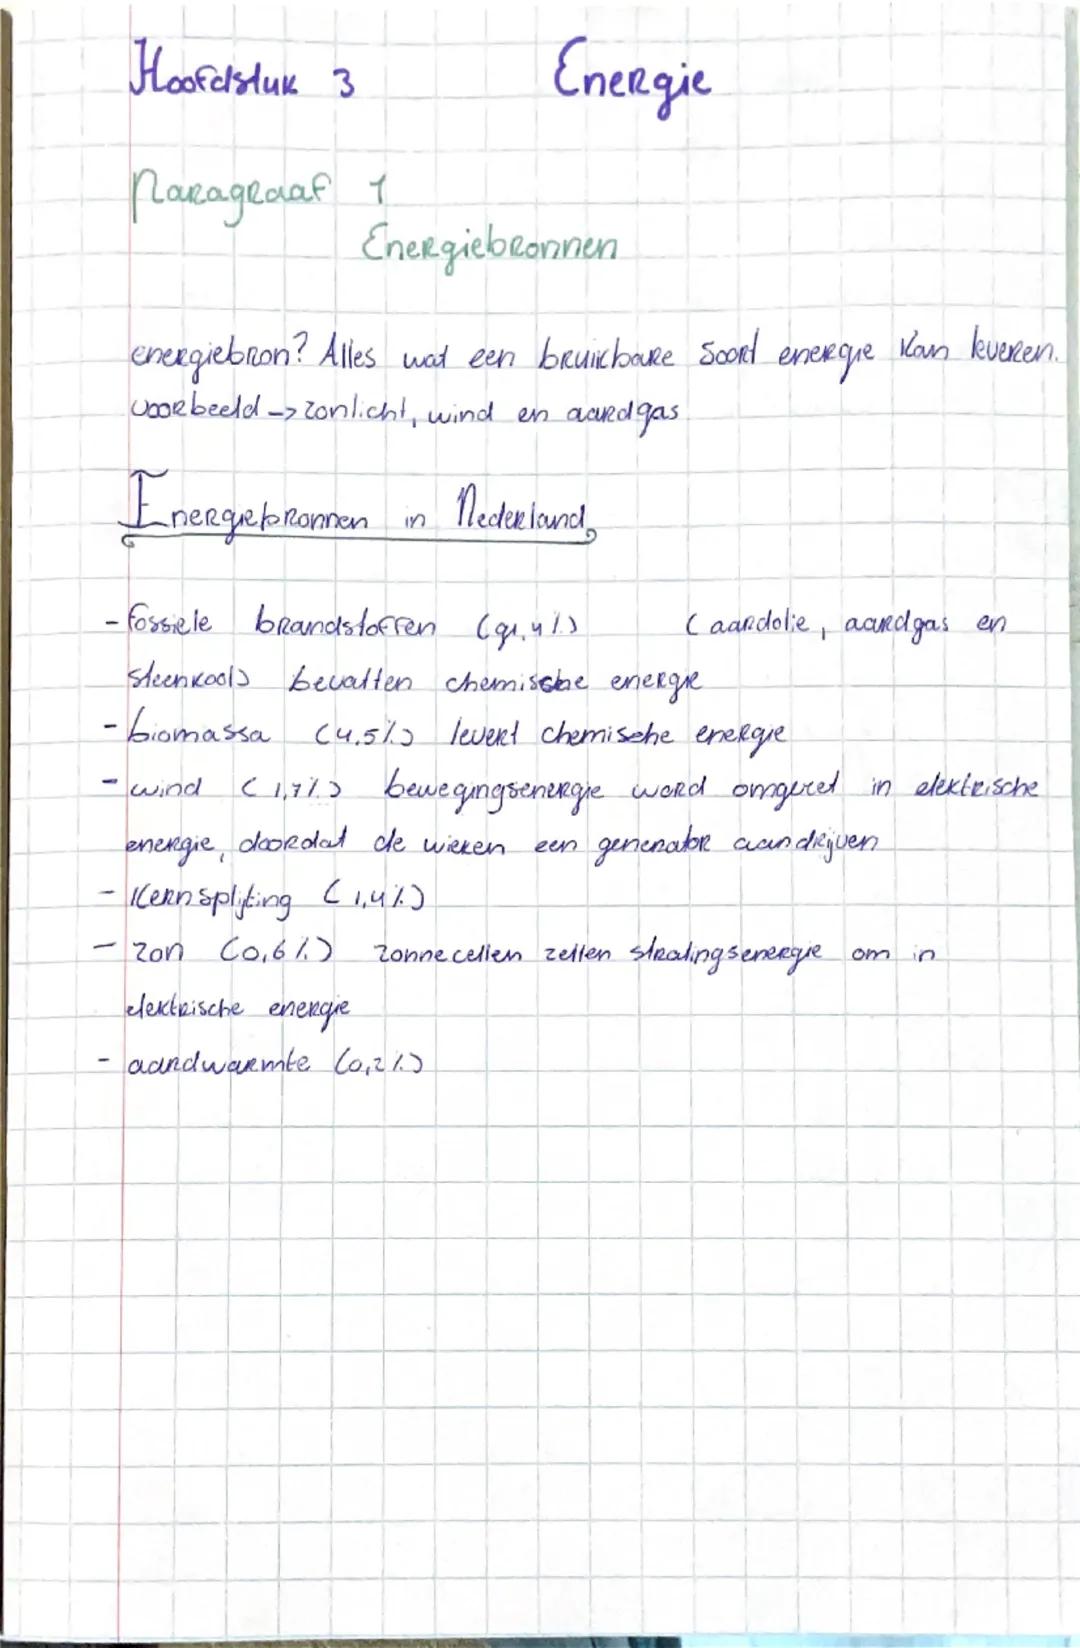 Hoofdstuk 3 Energie
Paragraaf 1
Energiebronnen
energiebron? Alles wat een bruikbare soort energie kan leveren.
voorbeeld -> zonlicht, wind en aardgas
Energiebronnen in Nederland
- fossiele brandstoffen (91,4%) (aardolie, aardgas en
steenkool) bevatten chemische energie
- biomassa (4,5%) levert chemische energie
- wind (1,7%) bewegingsenergie word omgezet in elektrische
energie, doordat de wieken een generator aandrijven
- Kernsplijting (1,4%)
- zon (0,6%) zonnecellen zetten stralingsenergie om in
elektrische energie
- aardwarmte (0,2%)